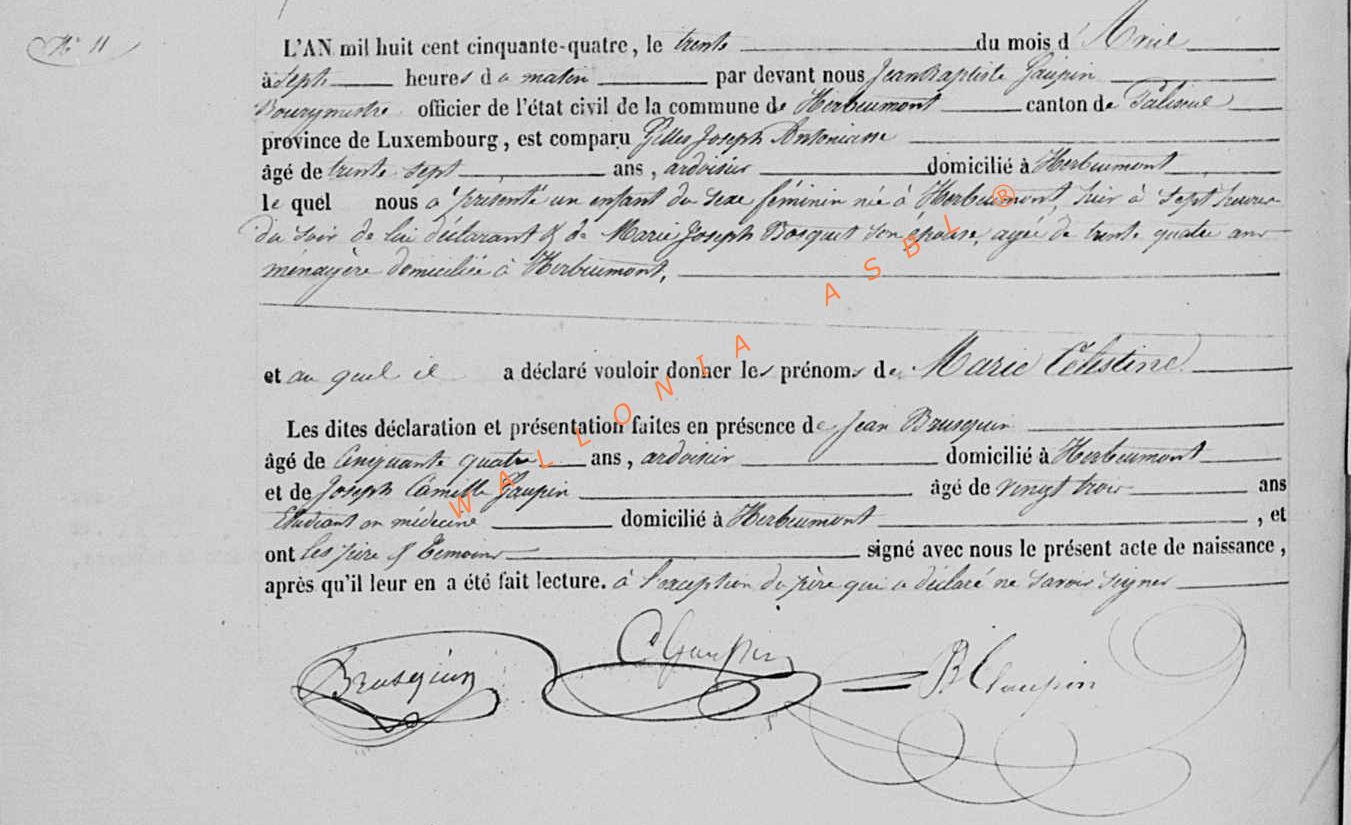 N° 11
L'AN mil huit cent cinquante-quatre, le trente du mois d'Avril
à Sept heures du matin par devant nous Jean Baptiste Gaupin
Bourgmestre officier de l'état civil de la commune de Herbeumont canton de Paliseul
province de Luxembourg, est comparu Gilles Joseph Antoniasse
âgé de trente sept ans, ardoisier domicilié à Herbeumont
le quel nous a présenté un enfant du sexe féminin née à Herbeumont, hier à sept heures
du soir de lui déclarant & de Marie Joseph Bosquet son épouse, agée de trente quatre ans
ménagère domiciliée à Herbeumont,
et au quel il a déclaré vouloir donner les prénoms de Marie Célestine
Les dites déclaration et présentation faites en présence de Jean Brusquin
âgé de Cinquante quatre ans, ardoisier domicilié à Herbeumont
et de Joseph Camille Gaupin âgé de vingt trois ans
Etudiant en médecine domicilié à Herbeumont, et
ont les père & temoins signé avec nous le présent acte de naissance,
après qu'il leur en a été fait lecture. à l'exception du père qui a déclaré ne savoir signer
Brusquin
C Gaupin
B Gaupin
WALLONIA ASBL ®